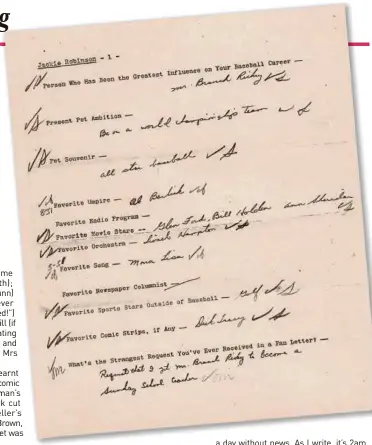 g
Jackie Robinson - 1 -
Person Who Has Been the Greatest Influence on Your Baseball Career —
Mr. Branch Rickey
Present Pet Ambition —
Be on a world championship team
Pet Souvenir —
all star baseball
Favorite Umpire — Al Barlick
Favorite Radio Program —
Favorite Movie Stars — Glen Ford, Bill Holden Ann Sheridan
Favorite Orchestra — Lionel Hampton
Favorite Song — Mona Lisa
Favorite Newspaper Columnist —
Favorite Sports Stars Outside of Baseball — Golf
Favorite Comic Strips, if Any — Dick Tracy
What's the Strangest Request You've Ever Received in a Fan Letter: —
Request that I get Mr. Branch Rickey to become a
Sunday School teacher
me
th);
unn)
ver
ed!")
ill (if
ating
and
Mrs
earnt
comic
man's
k cut
eller's
Brown,
et was
a day without news. As I write, it's 2am